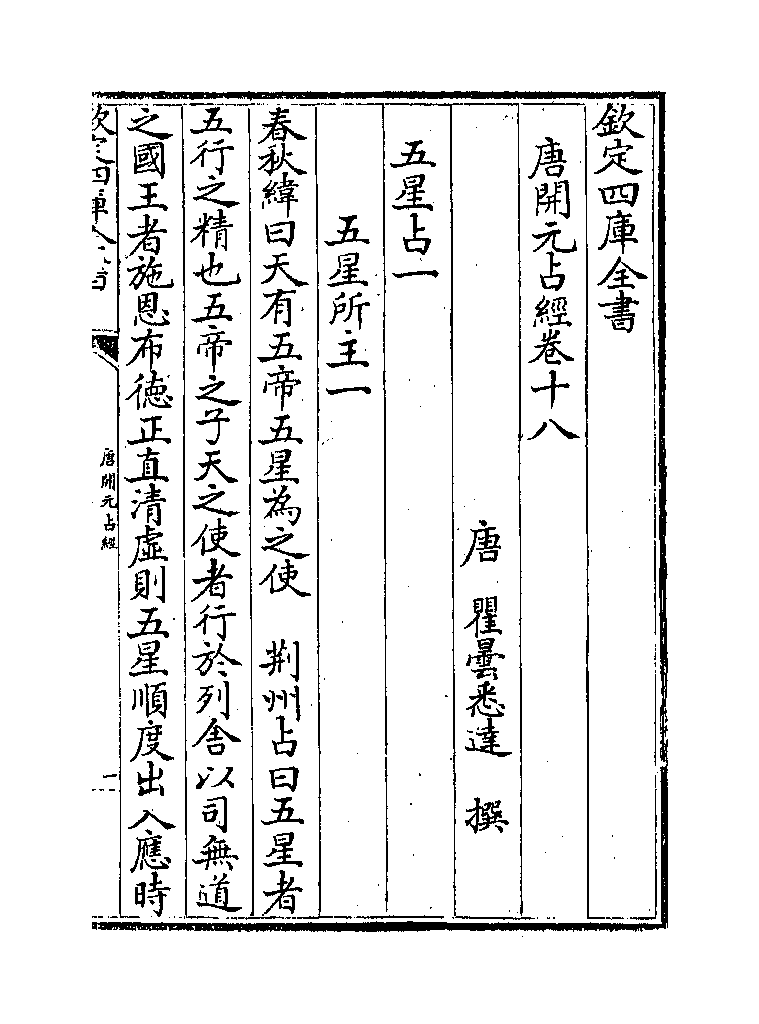 欽定四庫全書
唐開元占經卷十八
唐　瞿曇悉達　撰
五星占一
五星所主一
春秋緯曰天有五帝五星為之使　荆州占曰五星者
五行之精也五帝之子天之使者行於列舎以司無道
之國王者施恩布徳正直清虛則五星順度出入應時
唐開元占經
一